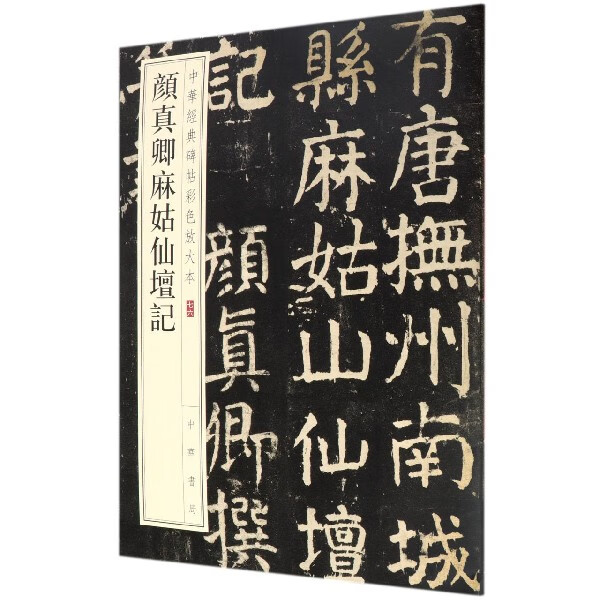 有唐撫州南城
縣麻姑山仙壇
記 顏眞卿撰
中華經典碑帖彩色放大本
中華書局
顏真卿麻姑仙壇記